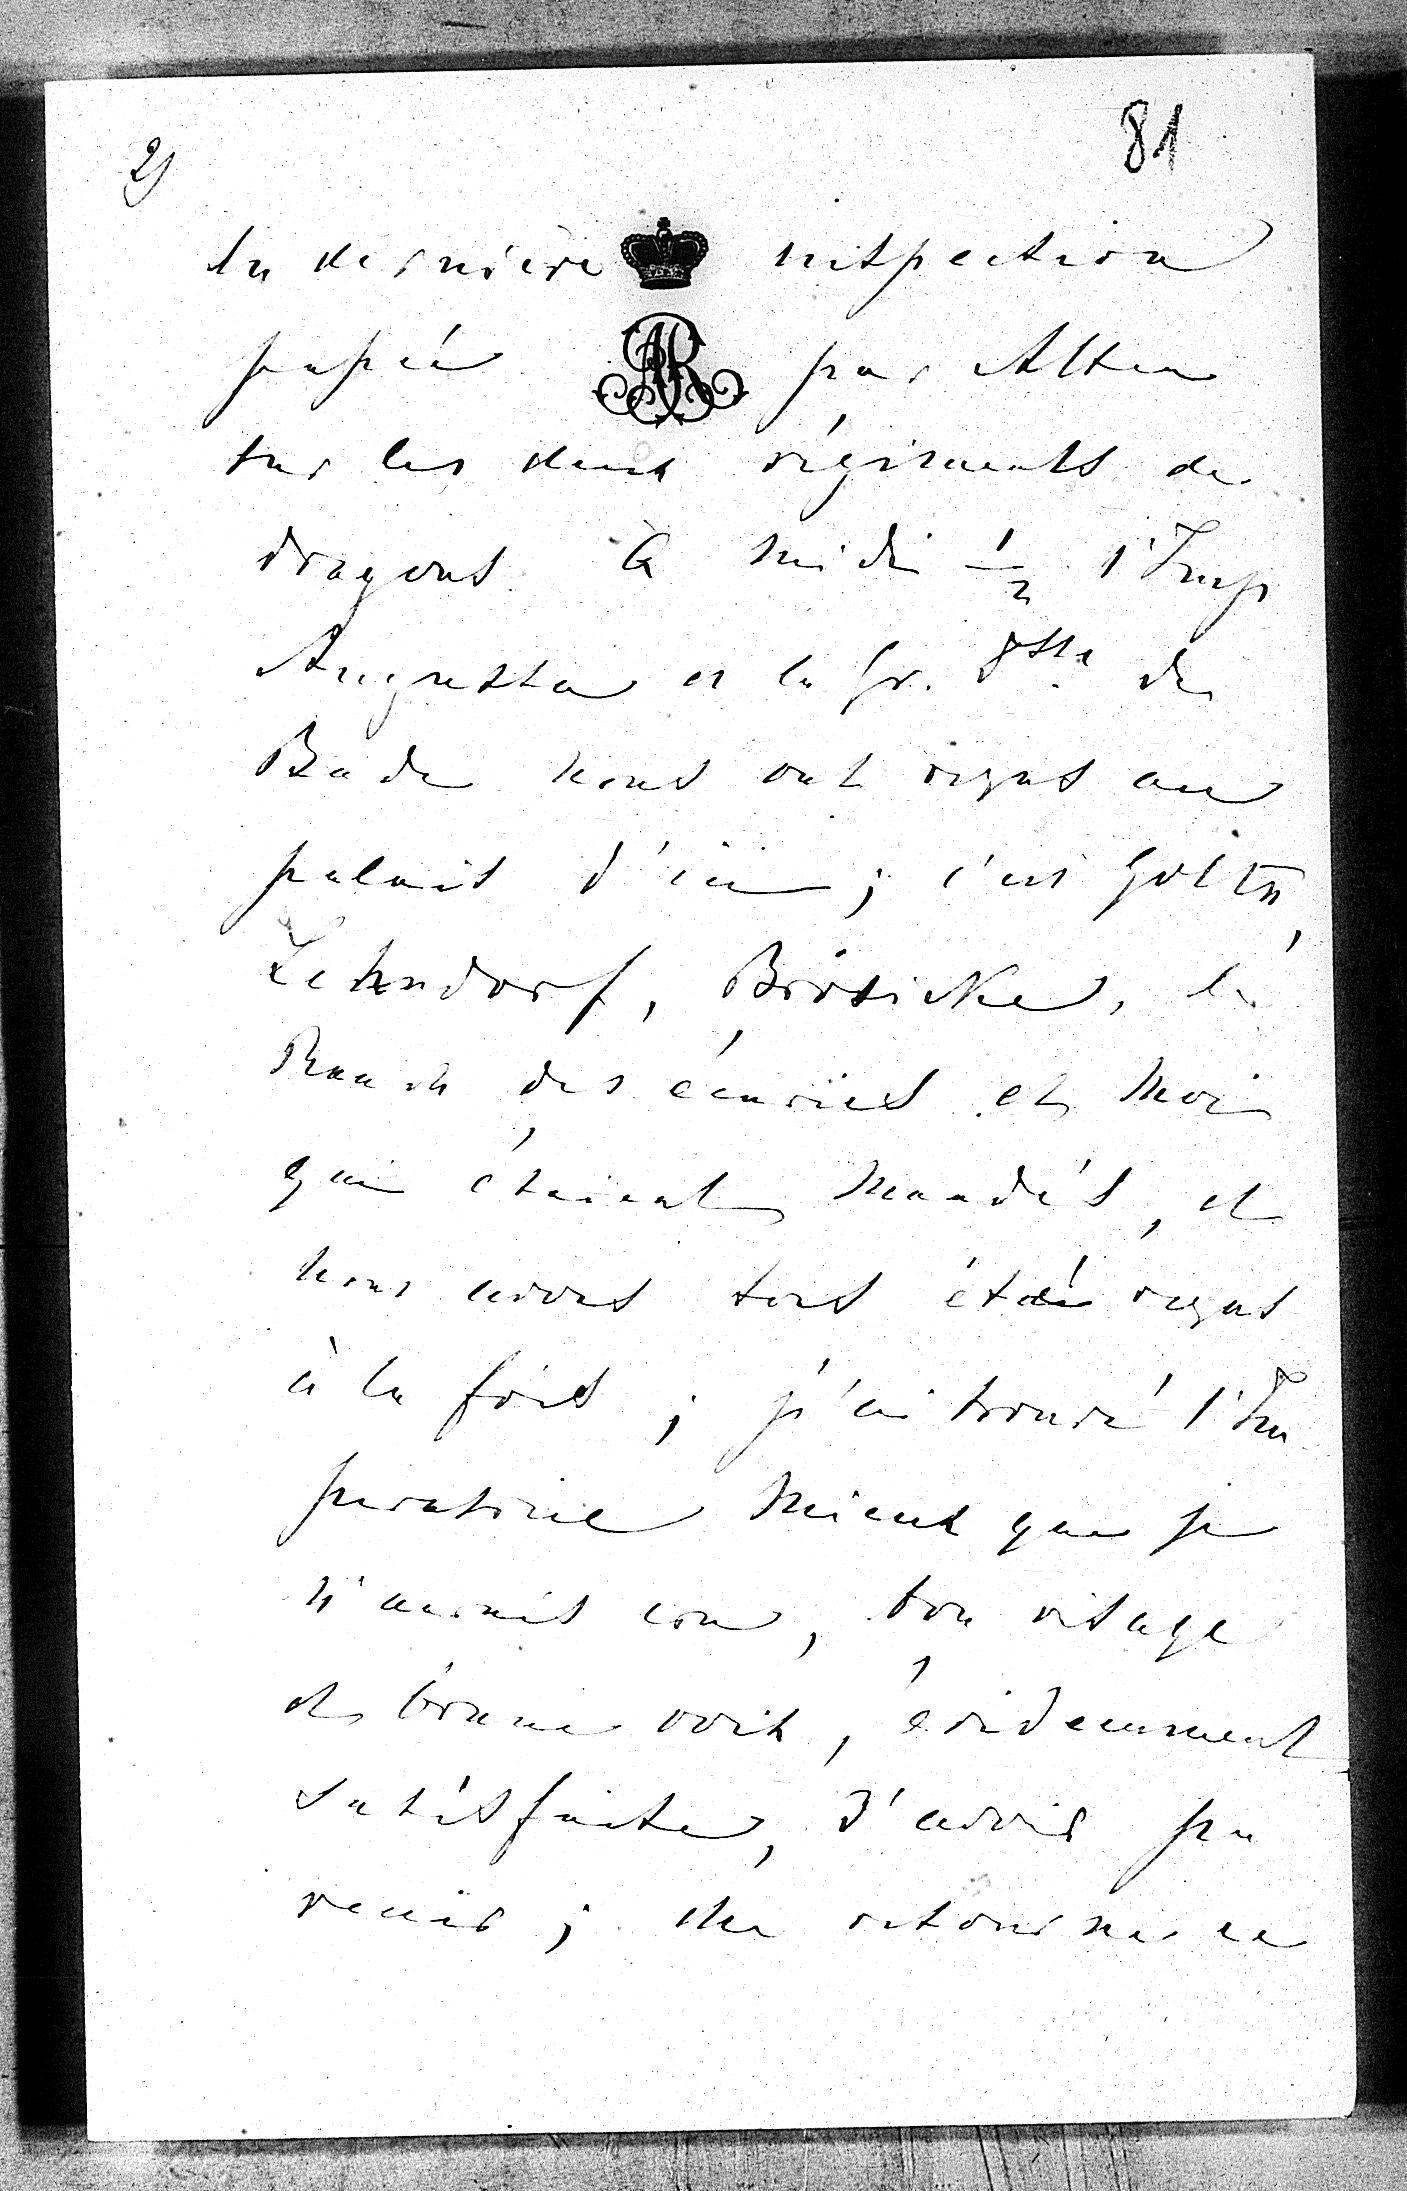 2)
81
la dernière inspection
passée par Alten
sur les deux régiments de
dragons. à midi 1/2 l'Imp
Augusta et la Gr. Dsse de
Bade nous ont reçus au
palais d'ici ; c'est Goltz,
Lehndorf, Brösicke, le
Rauch des écuries et moi
qui étaient mandés, et
nous avons tous été reçus
à la fois ; j'ai trouvé l'Im
peratrice mieux que je
n'aurais cru, bon visage
et bonne voix, évidemment
satisfaite, d'avoir pu
venir ; elle retourne ce